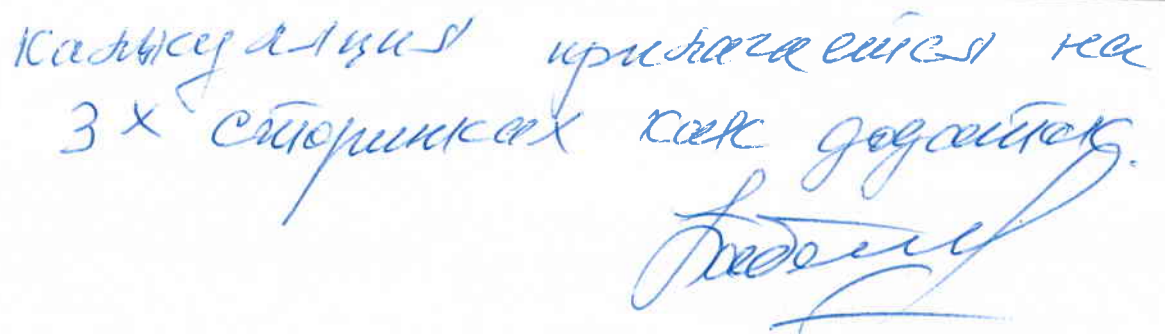 калькуляция прилагается на
3х сторинках как додаток.